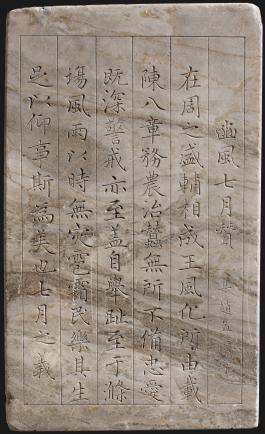 豳風七月贊
在周之盛輔相成王風化所由載
陳八章務農治蠶無所不備忠愛
既深警戒亦至盖自舉趾至于滌
場風雨以時無灾雹霜民樂其生
足以仰事斯為美也七月之義